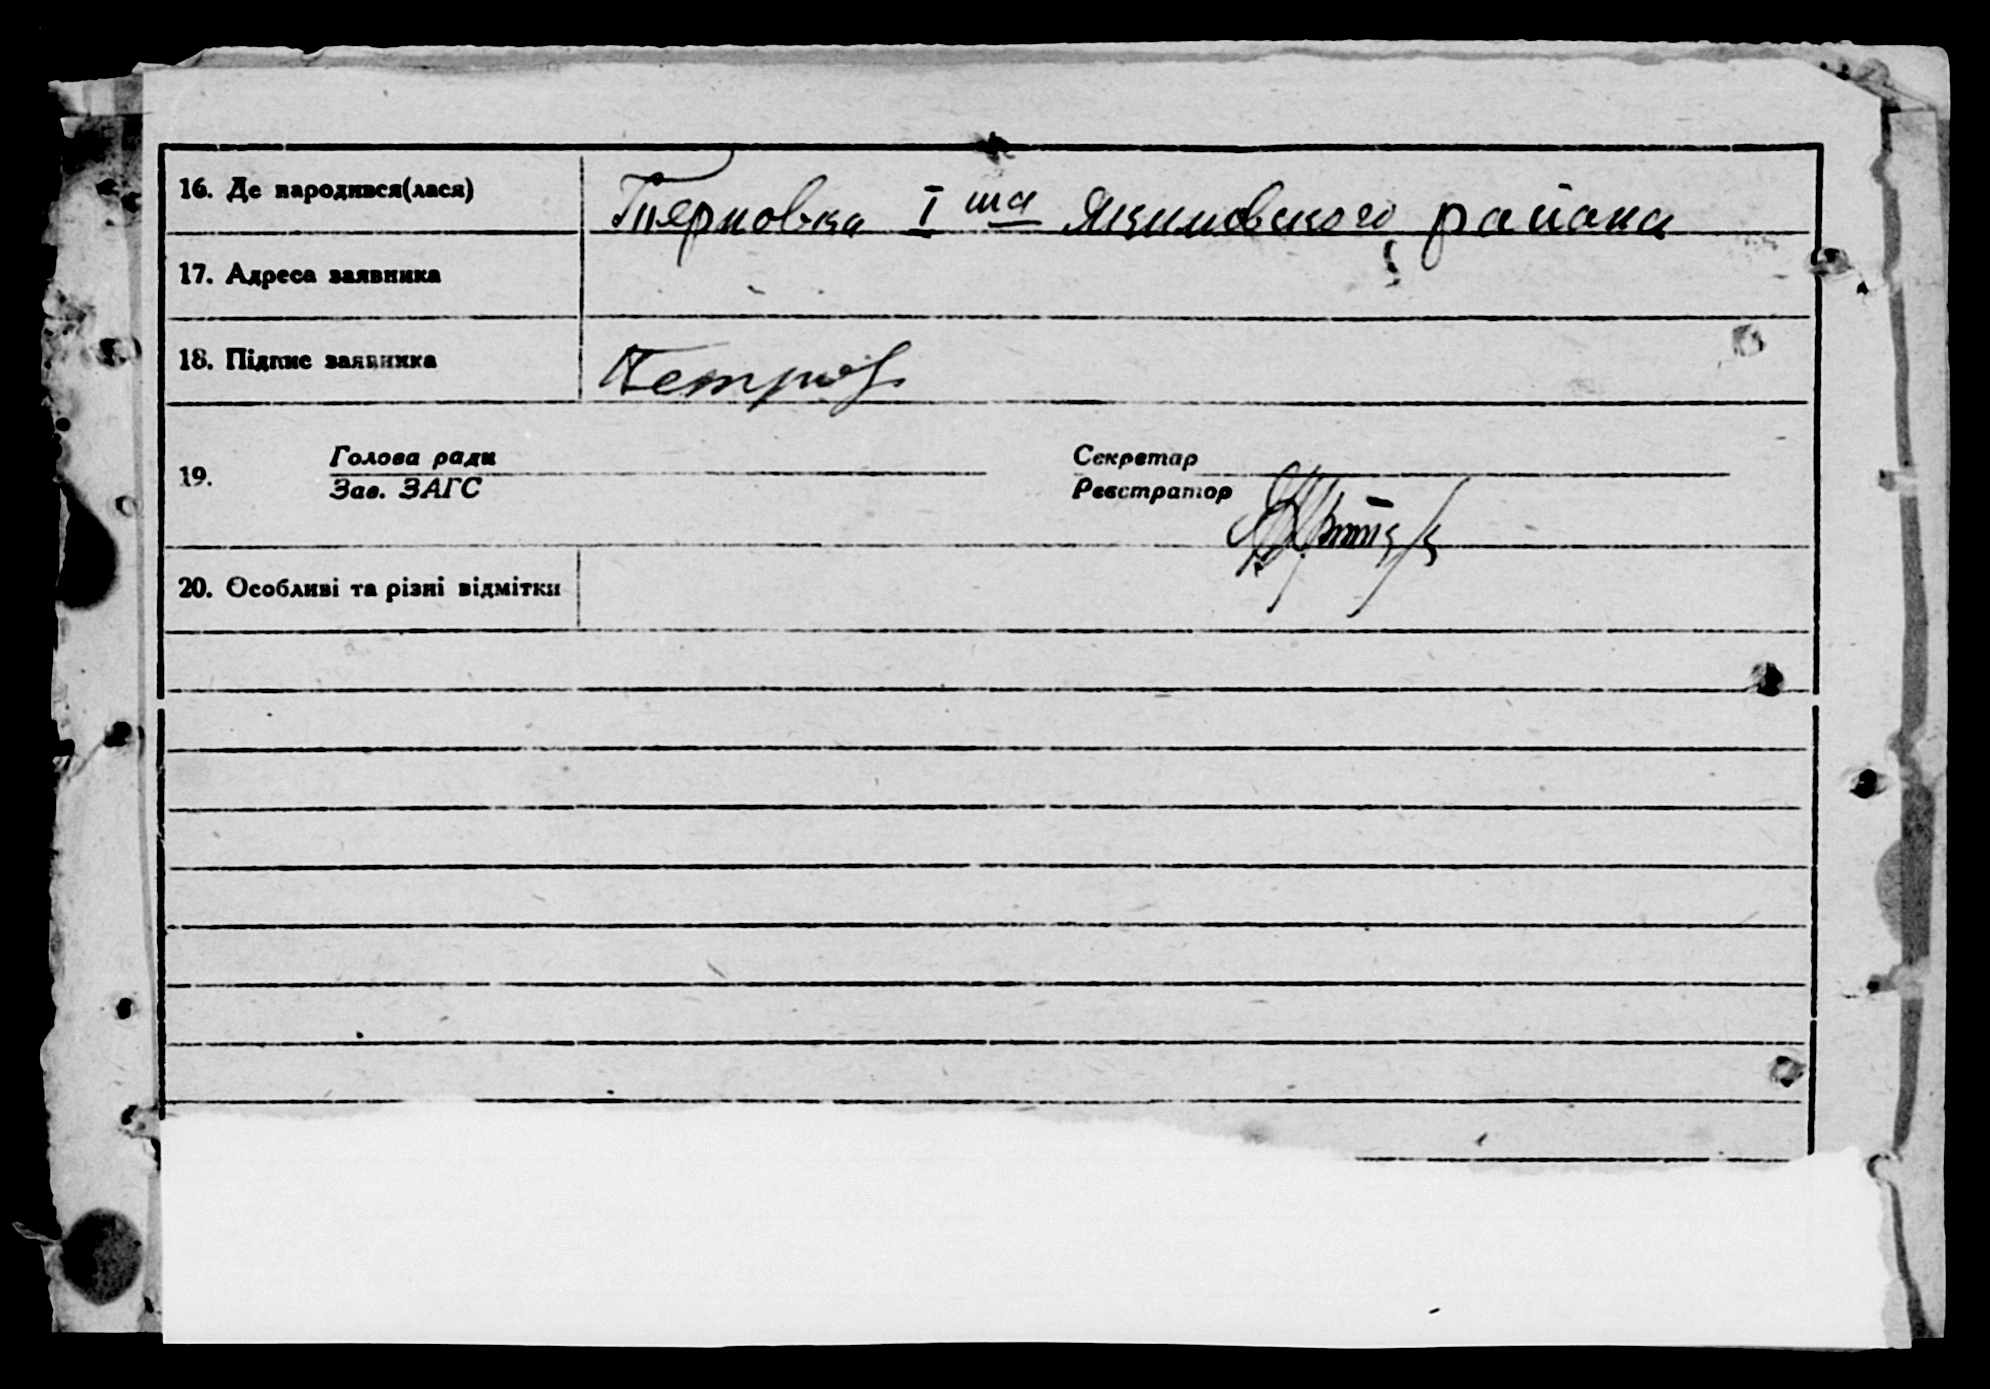 16. Де народився(лася) Терновка I ша Якимовского района
17. Адреса заявника
18. Підпис заявника Петров
19. Голова ради Секретар
Зав. ЗАГС Реєстратор
20. Особливі та різні відмітки